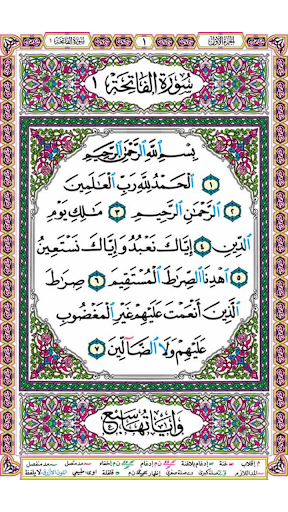 الجزء الأول
١
سورة الفاتحة ١
سُورَةُ الفَاتِحَةِ ١
بِسْمِ ٱللَّهِ ٱلرَّحْمَٰنِ ٱلرَّحِيمِ
١ ٱلْحَمْدُ لِلَّهِ رَبِّ ٱلْعَٰلَمِينَ
٢ ٱلرَّحْمَٰنِ ٱلرَّحِيمِ ٣ مَٰلِكِ يَوْمِ
ٱلدِّينِ ٤ إِيَّاكَ نَعْبُدُ وَإِيَّاكَ نَسْتَعِينُ
٥ ٱهْدِنَا ٱلصِّرَٰطَ ٱلْمُسْتَقِيمَ ٦ صِرَٰطَ
ٱلَّذِينَ أَنْعَمْتَ عَلَيْهِمْ غَيْرِ ٱلْمَغْضُوبِ
عَلَيْهِمْ وَلَا ٱلضَّآلِّينَ ٧
وَآيَاتُهَا سَبْعٌ